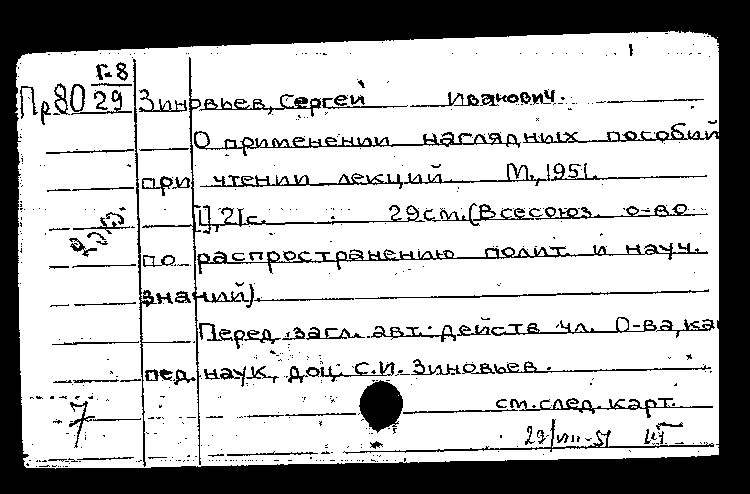 Г-8
Пр80 29 Зиновьев, Сергей Иванович.
О применении наглядных пособий
при чтении лекций. М., 1951.
[], 21с. ; 29см. (Всесоюз. о-во
по распространению полит. и науч.
знаний).
Перед загл. авт.: действ чл. О-ва, ка
пед. наук, доц. С.И. Зиновьев.
см. след. карт.
7
29/VIII-51